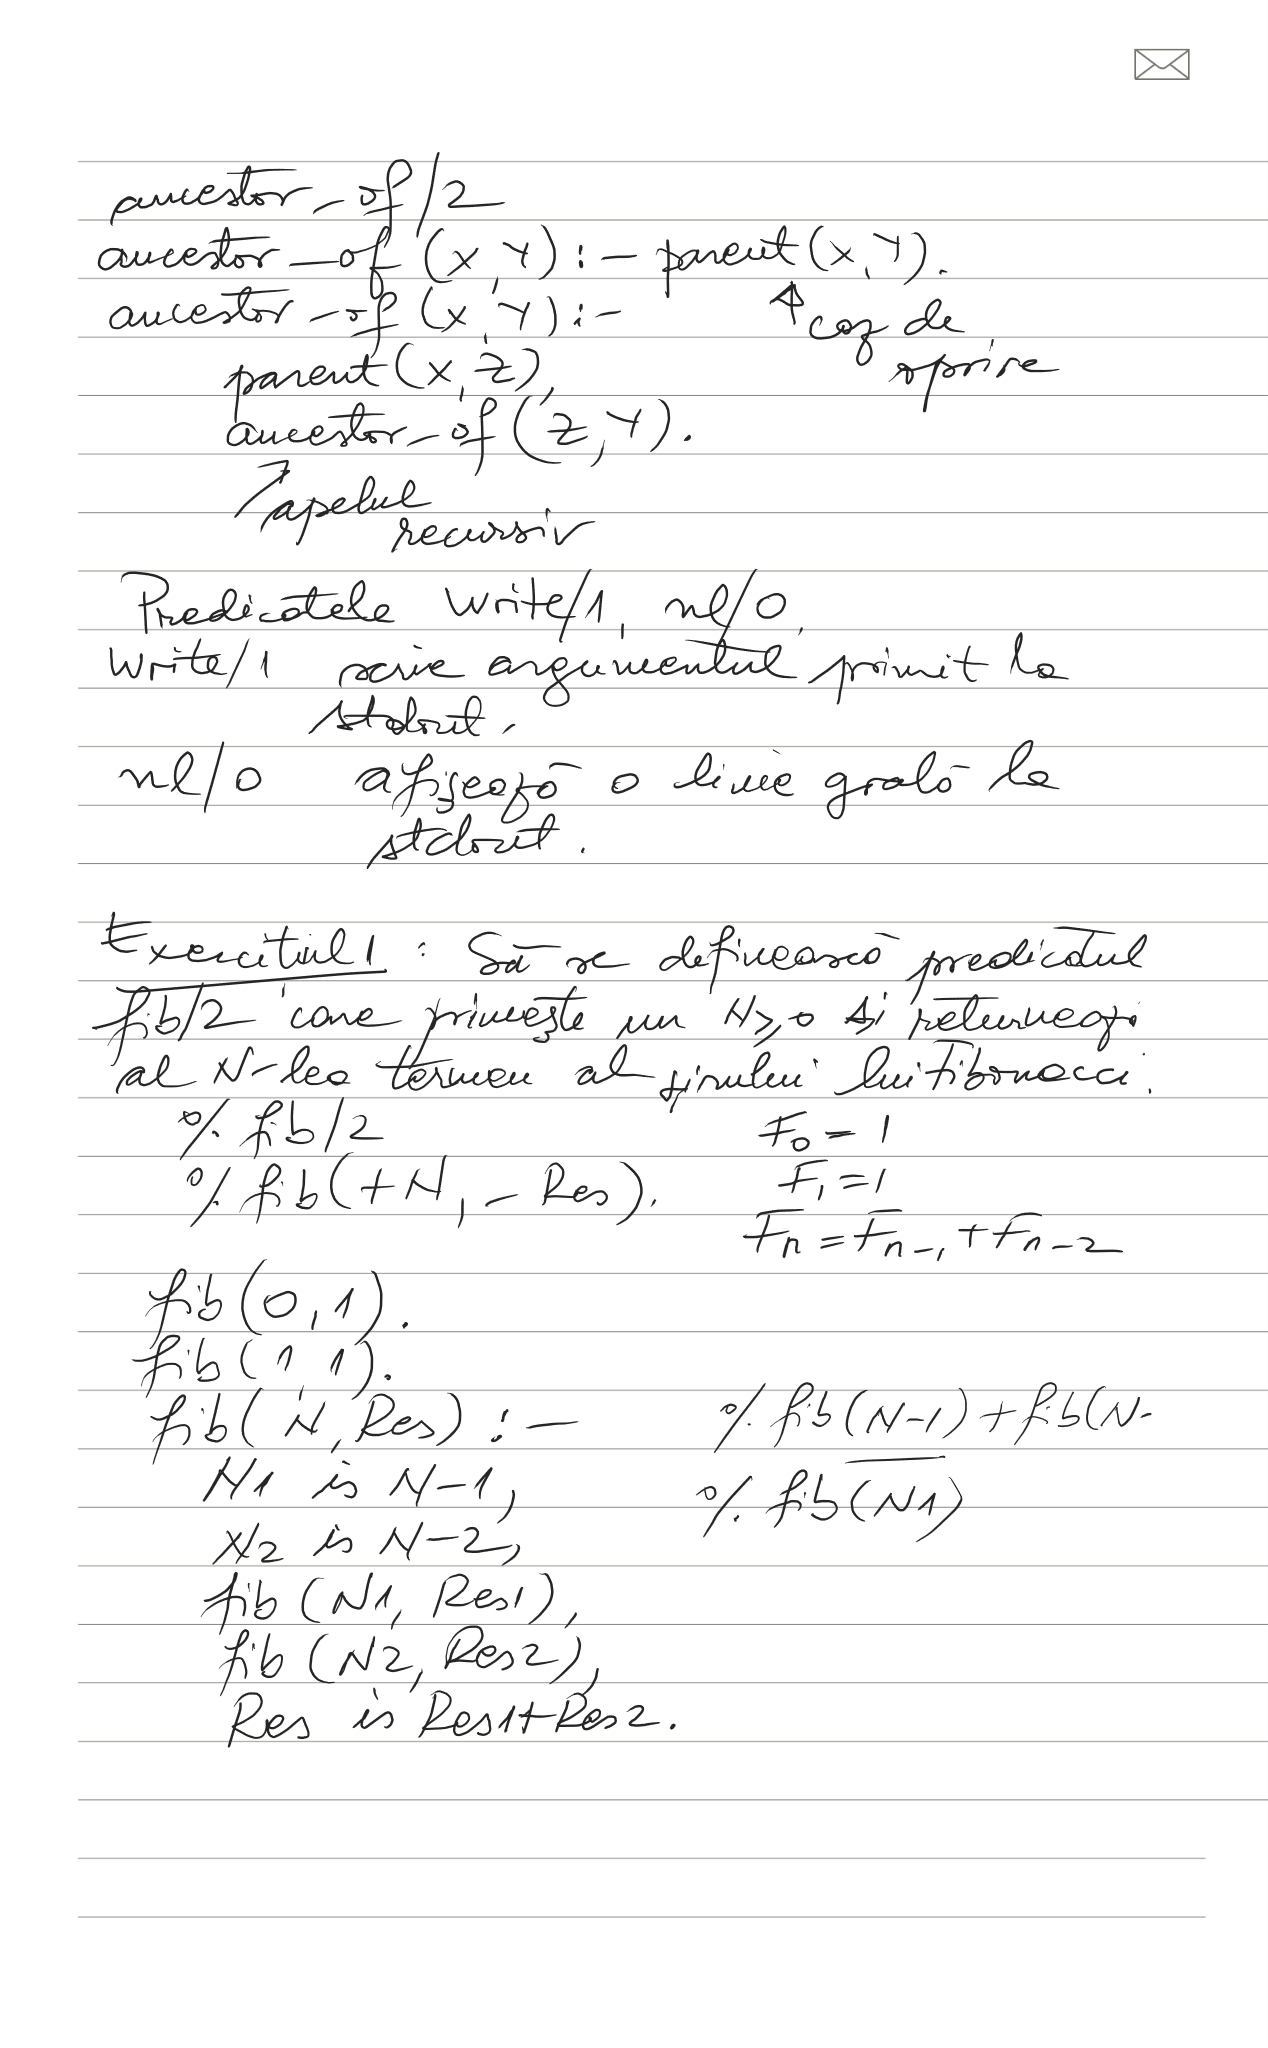 ancestor_of/2
ancestor_of(X,Y):- parent(X,Y).
ancestor_of(X,Y):-
caz de
oprire
parent(X,Z),
ancestor_of(Z,Y).
apelul
recursiv
Predicatele write/1, nl/0.
write/1 scrie argumentul primit la
stdout.
nl/0 afișează o linie goală la
stdout.
Exercițiul 1: Să se definească predicatul
fib/2 care primește un N≥0 și returneaz
al N-lea termen al șirului lui Fibonacci.
% fib/2
F0 = 1
% fib(+N, -Res).
F1 = 1
Fn = Fn-1 + Fn-2
fib(0,1).
fib(1,1).
fib(N,Res):-
% fib(N-1)+fib(N-
N1 is N-1,
% fib(N1)
N2 is N-2,
fib(N1, Res1),
fib(N2, Res2),
Res is Res1+Res2.